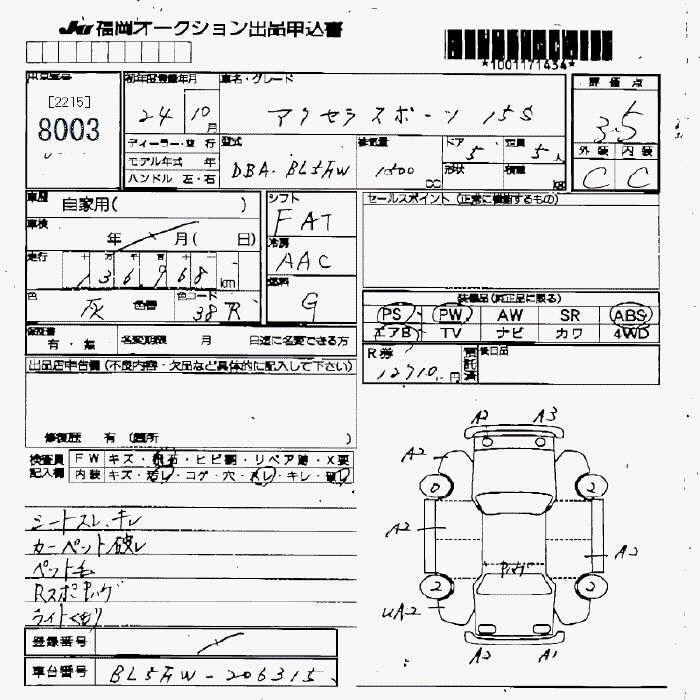 JU 福岡オークション出品申込書
*1001171434*
出品番号
[2215]
8003
初年度登録年月
24 10月
車名・グレード
アクセラスポーツ 15S
評価点
3.5
外装 内装
C C
ディーラー・並行
モデル年式 年
ハンドル 左・右
型式
DBA-BL5FW
排気量
1500 cc
ドア
5
形状
定員
5人
積載
kg
車歴
自家用( )
車検
年 月( 日)
走行
十万千百十
136,968 km
色
灰
色替
色コード
38R
シフト
FAT
冷房
AAC
燃料
G
セールスポイント (正常に機能するもの)
装備品(純正品に限る)
PS PW AW SR ABS
エアB TV ナビ カワ 4WD
R券
12910 円
預託済
後日品
保証書
有・無
名変期限 月 日迄に名変できる方
出品店申告欄 (不良内容・欠品など具体的に記入して下さい)
修復歴 有 (箇所 )
検査員記入欄
FW キズ・飛石・ヒビ割・リペア跡・X要
内装 キズ・汚レ・コゲ・穴・スレ・キレ・破レ
シートスレ、キレ
カーペット破レ
ペット毛
ライトくもり
登録番号
車台番号 BL5FW-206315
A2 A3
A2
0 2
A2
A2
2 2
UA2
A2 A1